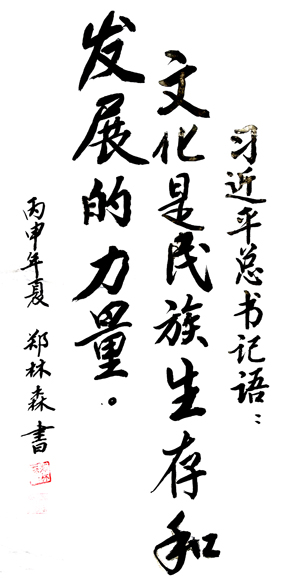 习近平总书记语：
文化是民族生存和
发展的力量。
丙申年夏 郑林森書